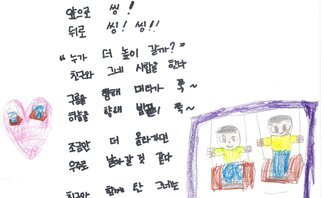 앞으로 씽!
뒤로 씽! 씽!!
"누가 더 높이 갈까?"
친구와 그네 시합을 한다
구름을 향해 머리가 쭉~
하늘을 향해 발끝이 쭉~
조금만 더 올라가면
우주로 날아갈 것 같다
친구와 함께 탄 그네는